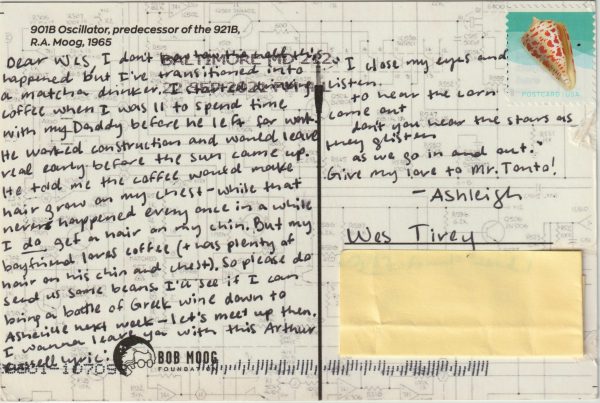 901B Oscillator, predecessor of the 921B,
R.A. Moog, 1965
Dear Wes, I don't know how the hell this
happened but I've transitioned into
a matcha drinker. I started drinking
coffee when I was 11 to spend time
with my Daddy before he left for work.
He worked construction and would leave
real early before the sun came up.
He told me the coffee would make
hair grow on my chest - while that
never happened every once in a while
I do get a hair on my chin. But my
boyfriend loves coffee (+ has plenty of
hair on his chin and chest). So please do
send us some beans. I'll see if I can
bring a bottle of Greek wine down to
Asheville next week - let's meet up then.
I wanna leave you with this Arthur
Russell lyric:
BOB MOOG
FOUNDATION
BALTIMORE MD 212
I close my eyes and
listen.
to hear the corn
come out
don't you hear the stars as
they glisten
as we go in and out."
Give my love to Mr. Tonto!
- Ashleigh
POSTCARD USA
Wes Tirey